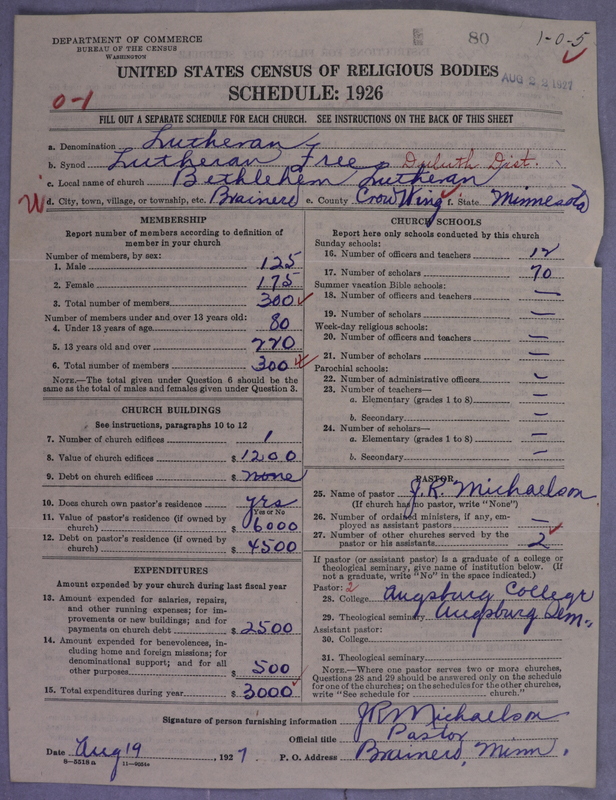 DEPARTMENT OF COMMERCE
BUREAU OF THE CENSUS
WASHINGTON
80
1-0-5
UNITED STATES CENSUS OF RELIGIOUS BODIES
AUG 22 1927
SCHEDULE: 1926
0-1
FILL OUT A SEPARATE SCHEDULE FOR EACH CHURCH. SEE INSTRUCTIONS ON THE BACK OF THIS SHEET
a. Denomination Lutheran
b. Synod Lutheran Free Duluth Dist.
c. Local name of church Bethlehem Lutheran
d. City, town, village, or township, etc. Brainerd e. County Crow Wing f. State Minnesota
MEMBERSHIP
Report number of members according to definition of
member in your church
Number of members, by sex:
1. Male 125
2. Female 175
3. Total number of members 300
Number of members under and over 13 years old:
4. Under 13 years of age 80
5. 13 years old and over 220
6. Total number of members 300
NOTE.—The total given under Question 6 should be
the same as the total of males and females given under Question 3.
CHURCH BUILDINGS
See instructions, paragraphs 10 to 12
7. Number of church edifices 1
8. Value of church edifices $ 1200
9. Debt on church edifices $ none
10. Does church own pastor's residence yes
Yes or No
11. Value of pastor's residence (if owned by
church) $ 6000
12. Debt on pastor's residence (if owned by
church) $ 4500
EXPENDITURES
Amount expended by your church during last fiscal year
13. Amount expended for salaries, repairs,
and other running expenses; for im-
provements or new buildings; and for
payments on church debt $ 2500
14. Amount expended for benevolences, in-
cluding home and foreign missions; for
denominational support; and for all
other purposes $ 500
15. Total expenditures during year $ 3000
CHURCH SCHOOLS
Report here only schools conducted by this church
Sunday schools:
16. Number of officers and teachers 12
17. Number of scholars 70
Summer vacation Bible schools:
18. Number of officers and teachers —
19. Number of scholars —
Week-day religious schools:
20. Number of officers and teachers —
21. Number of scholars —
Parochial schools:
22. Number of administrative officers —
23. Number of teachers—
a. Elementary (grades 1 to 8) —
b. Secondary —
24. Number of scholars—
a. Elementary (grades 1 to 8) —
b. Secondary —
PASTOR
25. Name of pastor J.R. Michaelson
(If church has no pastor, write "None")
26. Number of ordained ministers, if any, em-
ployed as assistant pastors —
27. Number of other churches served by the
pastor or his assistants 2
If pastor (or assistant pastor) is a graduate of a college or
theological seminary, give name of institution below. (If
not a graduate, write "No" in the space indicated.)
Pastor: 2
28. College Augsburg College
29. Theological seminary Augsburg Sem.
Assistant pastor:
30. College
31. Theological seminary
NOTE.—Where one pastor serves two or more churches,
Questions 28 and 29 should be answered only on the schedule
for one of the churches; on the schedules for the other churches,
write "See schedule for church."
Signature of person furnishing information J R Michaelson
Official title Pastor
Date Aug 19, 1927 P. O. Address Brainerd, Minn.
8-5518a